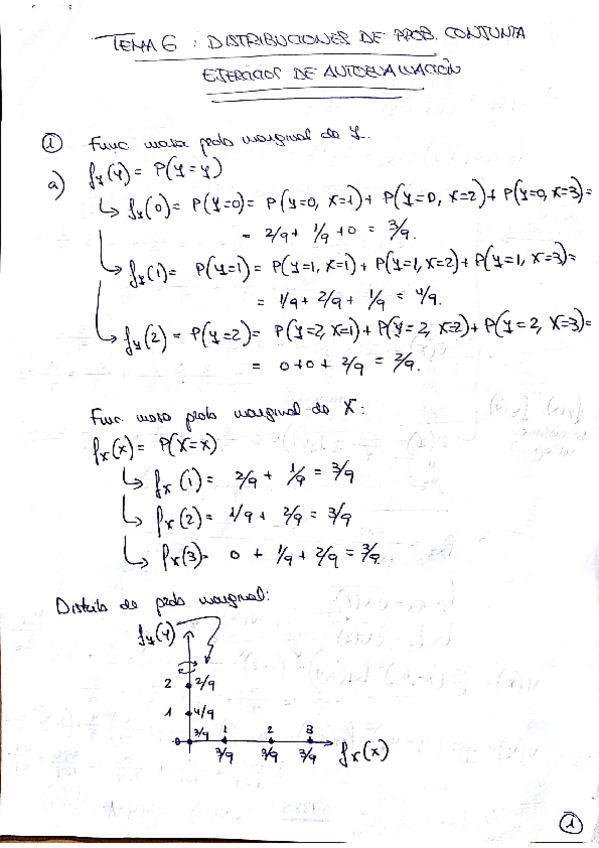 TEMA 6 : DISTRIBUCIONES DE PROB. CONJUNTA
EJERCICIOS DE AUTOEVALUACIÓN
① Func masa proba marginal de Y.
a) f_Y(y) = P(Y=y)
↳ f_Y(0) = P(Y=0) = P(Y=0, X=1) + P(Y=0, X=2) + P(Y=0, X=3) =
= 2/9 + 1/9 + 0 = 3/9.
↳ f_Y(1) = P(Y=1) = P(Y=1, X=1) + P(Y=1, X=2) + P(Y=1, X=3) =
= 1/9 + 2/9 + 1/9 = 4/9.
↳ f_Y(2) = P(Y=2) = P(Y=2, X=1) + P(Y=2, X=2) + P(Y=2, X=3) =
= 0+0+ 2/9 = 2/9.
Func masa proba marginal de X:
f_X(x) = P(X=x)
↳ f_X(1) = 2/9 + 1/9 = 3/9
↳ f_X(2) = 1/9 + 2/9 = 3/9
↳ f_X(3) = 0 + 1/9 + 2/9 = 3/9.
Distrib de proba marginal:
f_Y(y)
2 2/9
1 4/9
0 3/9 1 2 3
3/9 3/9 3/9 f_X(x)
①